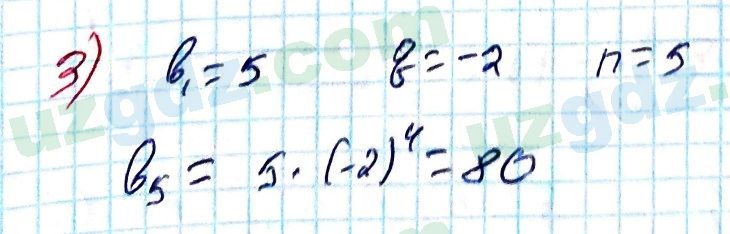 3) b₁ = 5 q = -2 n = 5
b₅ = 5 · (-2)⁴ = 80
uzgdz.com